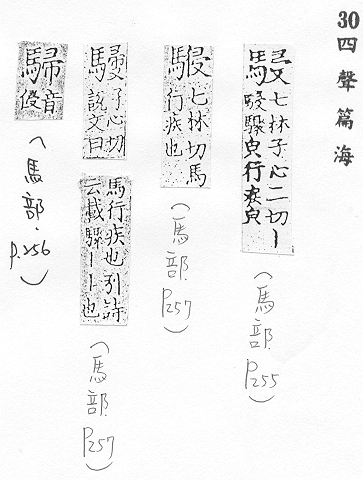 30 四聲篇海
七林子心二切丨
駸驟皃行疾皃
(馬部. P255)
七林切馬
行疾也
(馬部. P257)
子心切
說文曰
馬行疾也引詩
云載驟丨丨也
(馬部. P257)
音
(馬部. P.256)